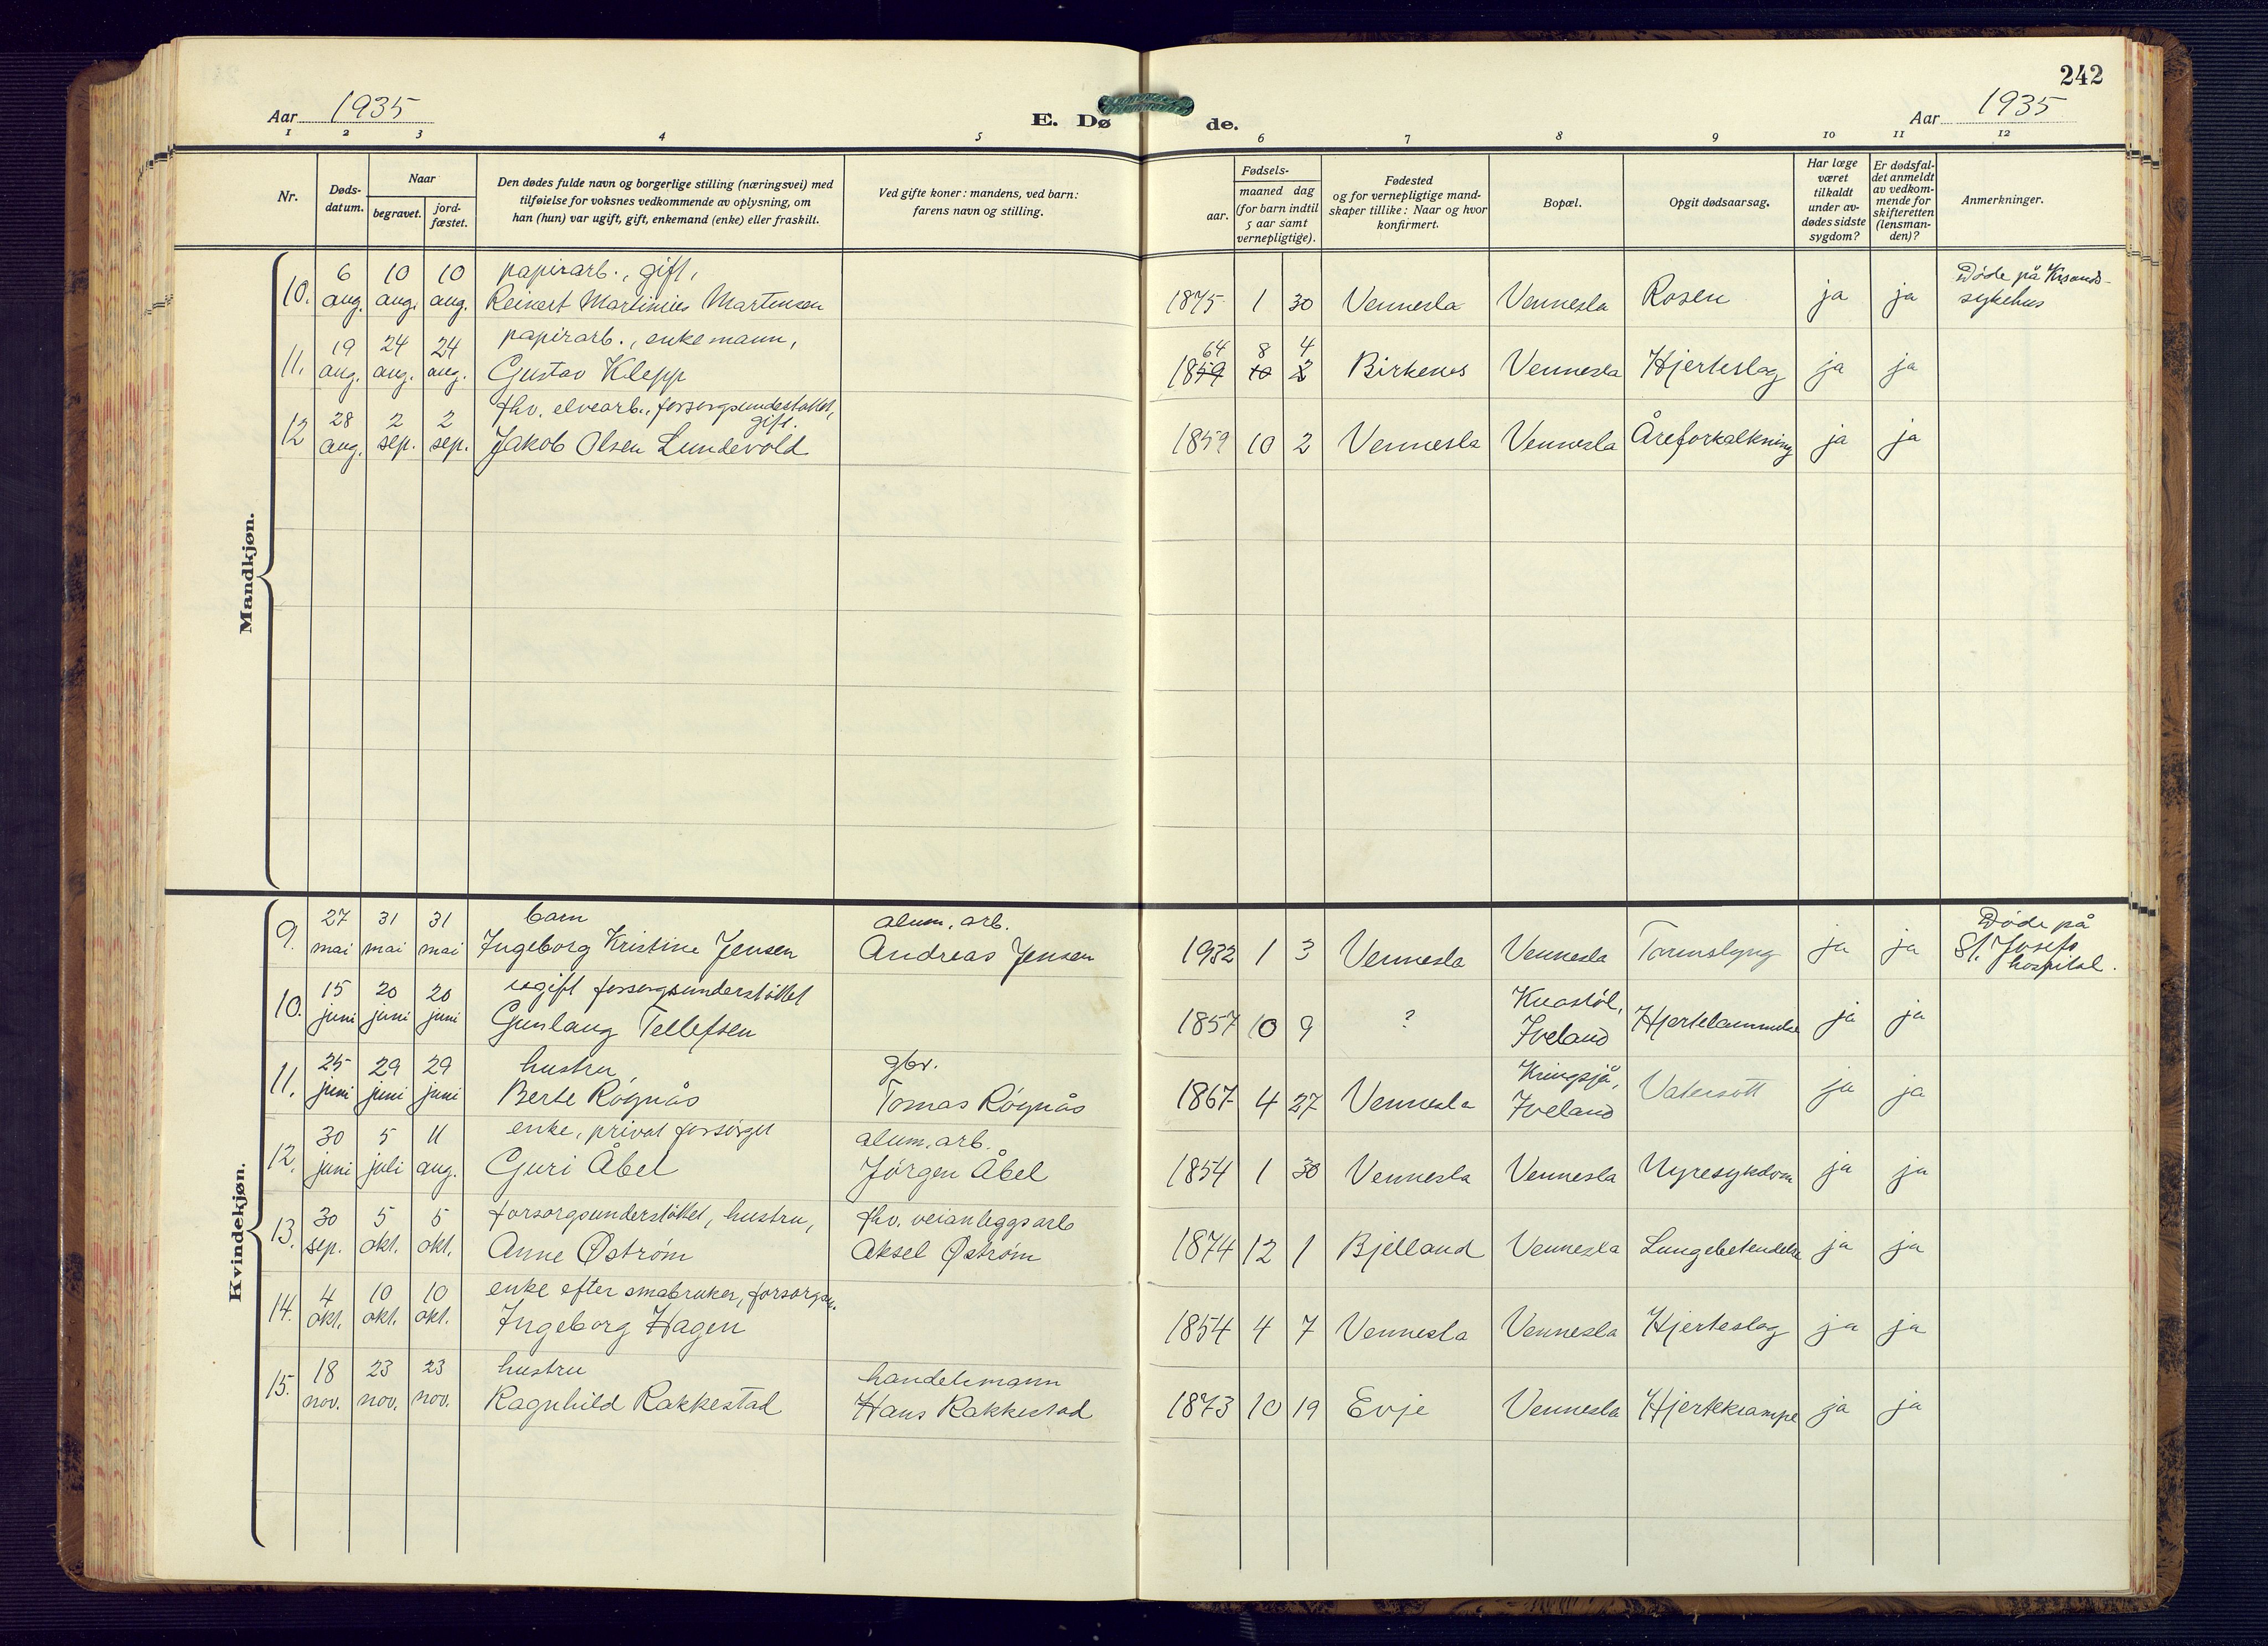 242
Aar 1935
E. Dø de.
Aar 1935
1 2 3 4 5 6 7 8 9 10 11 12
Nr.
Døds-
datum.
Naar
begravet.
jord-
fæstet.
Den dødes fulde navn og borgerlige stilling (næringsvei) med
tilføielse for voksnes vedkommende av oplysning, om
han (hun) var ugift, gift, enkemand (enke) eller fraskilt.
Ved gifte koner: mandens, ved barn:
farens navn og stilling.
Fødsels-
aar.
maaned dag
(for barn indtil
5 aar samt
vernepligtige).
Fødested
og for vernepligtige mand-
skaper tillike: Naar og hvor
konfirmert.
Bopæl.
Opgit dødsaarsag.
Har læge
været
tilkaldt
under av-
dødes sidste
sygdom?
Er dødsfal-
det anmeldt
av vedkom-
mende for
skifteretten
(lensman-
den)?
Anmerkninger.
Mandkjøn.
6 10 10 papirarb., gift, Døde på Krsands-
10. aug. aug. aug. Reinert Martinius Martensen 1875 1 30 Vennesla Vennesla Rosen ja ja sykehus
19 24 24 papirarb., enkemann, 64 8 4
11. aug. aug. aug. Gustav Klepp 1859 10 2 Birkenes Vennesla Hjerteslag ja ja
28 2 2 fhv. elvearb., forsorgsunderstøttet,
gift.
12 aug. sep. sep. Jakob Olsen Lundevold 1859 10 2 Vennesla Vennesla Åreforkalkning ja ja
Kvindekjøn.
27 31 31 barn alum. arb. Døde på
9. mai mai mai Ingeborg Kristine Jensen Andreas Jensen 1932 1 3 Vennesla Vennesla Tarmslyng ja ja St. Josefs
hospital.
15 20 20 ugift forsorgsunderstøttet
10. juni juni juni Gunlaug Tellefsen 1857 10 9 ? Iveland Hjertelammelse ja ja
25 29 29 hustru, gbr. Kringsjå,
11. juni juni juni Berte Røgnås Tomas Røgnås 1867 4 27 Vennesla Iveland Vatersott ja ja
30 5 11 enke, privat forsørget alum. arb.
12. juni juli aug. Guri Åbel Jørgen Åbel 1854 1 30 Vennesla Vennesla Nyresykdom ja ja
30 5 5 forsorgsunderstøttet, hustru, fhv. veianleggsarb
13. sep. okt. okt. Anne Øström Aksel Øström 1874 12 1 Bjelland Vennesla Lungebetendelse ja ja
4 10 10 enke efter småbruker, forsorgsu.
14. okt. okt. okt. Ingeborg Hagen 1854 4 7 Vennesla Vennesla Hjerteslag ja ja
18 23 23 hustru handelsmann
15. nov. nov. nov. Ragnhild Rakkestad Hans Rakkestad 1873 10 19 Evje Vennesla Hjertekrampe ja ja